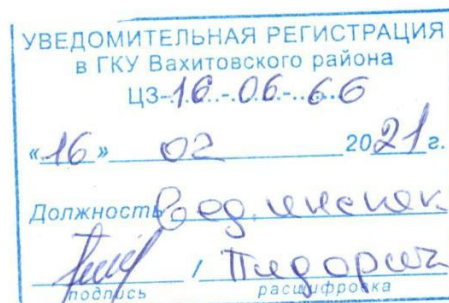 УВЕДОМИТЕЛЬНАЯ РЕГИСТРАЦИЯ
в ГКУ Вахитовского района
ЦЗ-16.-.06.-..66
«16» 02 2021г.
Должность
/
подпись расшифровка